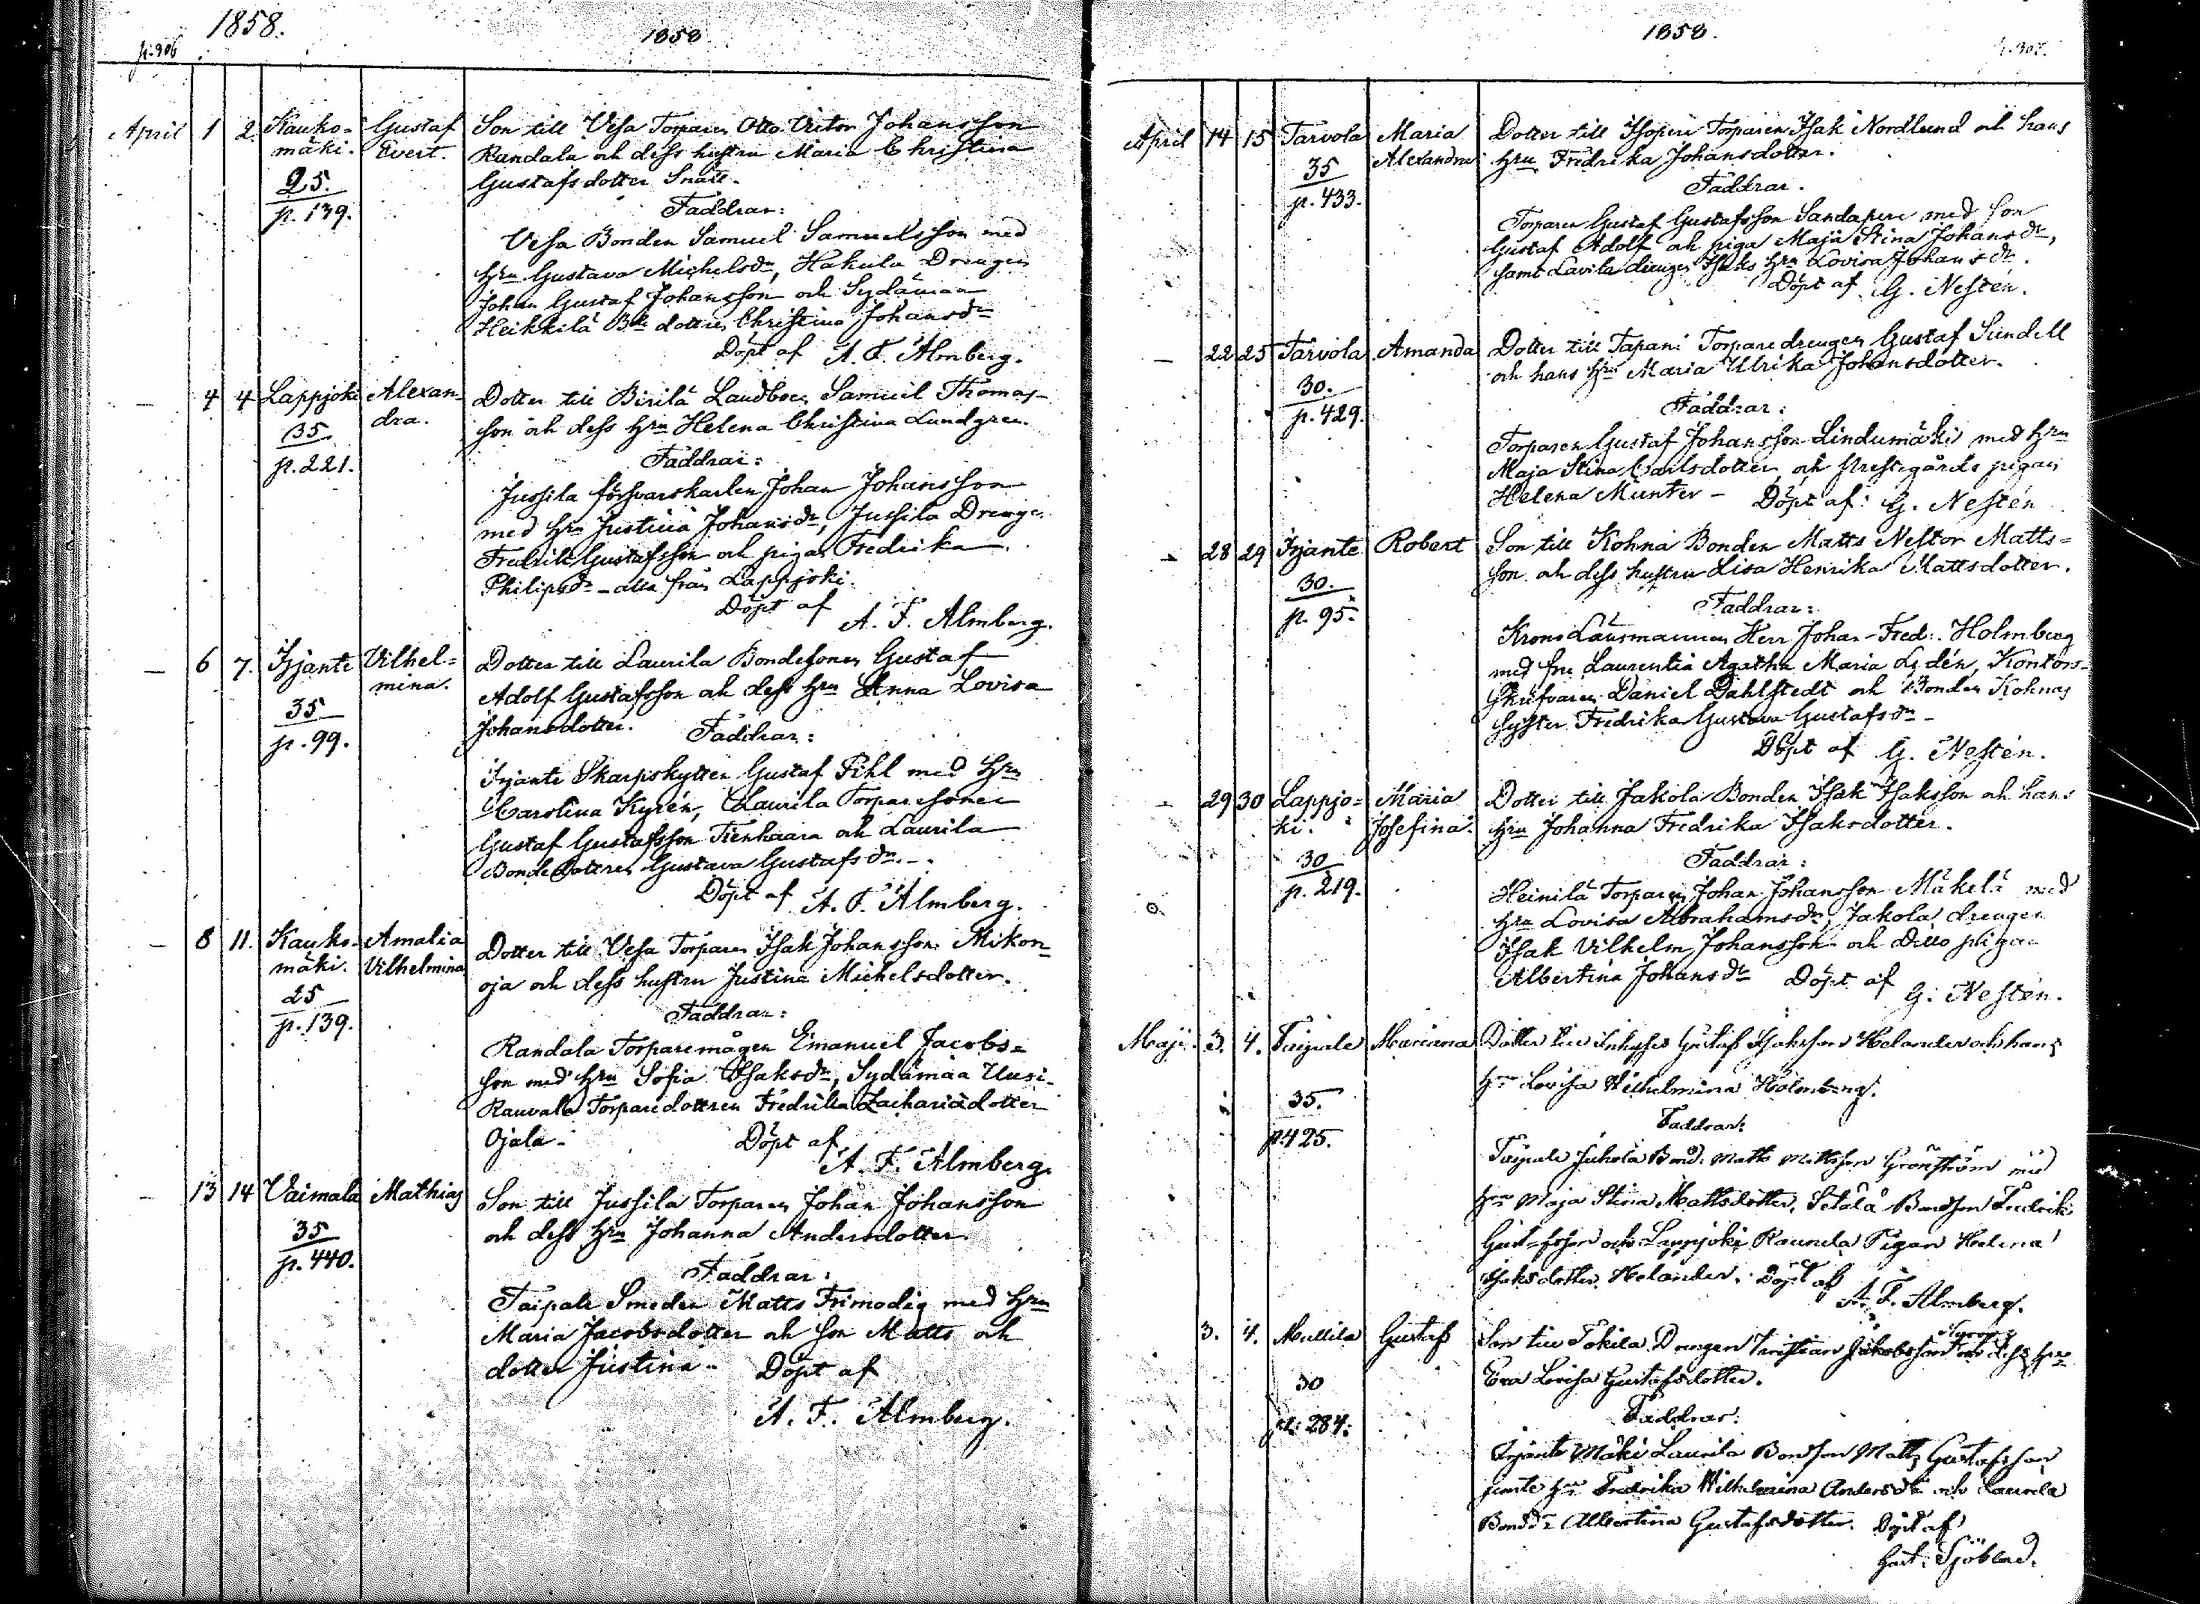 1858.
p. 306
1858
April 1 2 Kauko- Gustaf Son till Vesa Torparen Otto Victor Johansson
mäki. Evert. Randala och dess hustru Maria Christina
25. Gustafsdotter
p. 139. Faddrar:
Vesa Bonden Samuel Samuelsson med
hru Gustava Michelsdr, Hakula Drengen
Johan Gustaf Johansson och Sydänmaa
Heikkilä dottren Christina Johansdr
Döpt af A. F. Almberg.
— 4 4 Lappjoki Alexan- Dotter till Birilä Landboen Samuel Thomas-
dra. son och dess hru Helena Christina Lundgren.
35
p. 221. Faddrar:
Jussila försvarskarlen Johan Johansson
med hru Justina Johansdr, Jussila Drengen
Fredrik Gustafsson och pigan Fredrika
Philipsdr – alla från Lappjoki.
Döpt af A. F. Almberg.
— 6 7. Irjante Vilhel- Dotter till Laurila Bondesonen Gustaf
mina. Adolf Gustafsson och dess hru Anna Lovisa
35 Johansdotter. Faddrar:
p. 99.
Irjante Skarpskytten Gustaf Pihl med hru
Carolina Kyrén, Laurila Torparesonen
Gustaf Gustafsson Tienhaara och Laurila
Bondedottren Gustava Gustafsdr. –
Döpt af A. F. Almberg.
— 8 11. Kauko- Amalia Dotter till Vesa Torparen Isak Johansson Mikon-
mäki. Vilhelmina oja och dess hustru Justina Michelsdotter.
25 Faddrar:
p. 139.
Randala Torparemågen Emanuel Jacobs-
son med hru Sofia Isaksdr, Sydämaa Uusi-
Rauvala Torparedottren Fredrika Zachariædotter
Ojala – Döpt af
A. F. Almberg.
— 13 14 Vaimala Mathias Son till Jussila Torparen Johan Johansson
35 och dess hru Johanna Andersdotter
p. 440.
Faddrar:
Taipale Smeden Matts Frimodig med hru
Maria Jacobsdotter och son Matts och
dotter Justina – Döpt af
A. F. Almberg.
1858.
p. 307.
April 14 15 Tarvola Maria Dotter till Isoperi Torparen Isak Nordlund och hans
35 Alexandra hru Fredrika Johansdotter.
p. 433. Faddrar.
Torparen Gustaf Gustafsson Sandaperi med son
Gustaf Adolf och piga Maja Stina Johansdr,
samt Lavila drengen Isaks hru Lovisa Johansdr.
Döpt af G. Nestén.
— 22 25 Tarvola Amanda Dotter till Tapani Torparedrengen Gustaf Sundell
och hans hru Maria Ulrika Johansdotter.
30.
p. 429. Faddrar:
Torparen Gustaf Johansson Lindumäki med hru
Maja Stina Carlsdotter och prestgårds pigan
Helena Munter – Döpt af: G. Nestén
— 28 29 Irjante Robert Son till Kohna Bonden Matts Nestor Matts-
son och dess hustru Lisa Henrika Mattsdotter.
30.
p. 95. Faddrar:
Krono Länsmannen Herr Johan Fred: Holmberg
med fru Laurentia Agatha Maria Lydén, Kontors-
skrifvaren Daniel Dahlstedt och Bonden Kohnas
syster Fredrika Gustava Gustafsdr –
Döpt af G. Nestén.
— 29 30 Lappjo- Maria Dotter till Jakola Bonden Isak Isaksson och hans
ki. Josefina. hru Johanna Fredrika Isaksdotter.
30 Faddrar:
p. 219.
Heinilä Torparen Johan Johansson Mäkelä med
hru Lovisa Abrahamsdr, Jakola drengen
Isak Vilhelm Johansson och Ditto pigan
Albertina Johansdr Döpt af
G. Nestén.
Maji 3. 4. Taipale Mariana Dotter till Inhyses Gustaf Isaksson Helander och hans
hru Lovisa Wilhelmina Holmberg.
35.
p. 425. Faddrar:
Taipale Juhola Bond. Matts Mattsson Grönström med
hru Maja Stina Mattsdotter, Setälä Bondson Fredrik
Gustafsson och Lappjoki Raunela Pigan Helena
Isaksdotter Helander. Döpt af
A. F. Almberg.
3. 4. Mullila Gustaf Son till Tokila Drengen Christian Jakobsson och dess hru
Eva Lovisa Gustafsdotter.
30
p. 284. Faddrar:
Irjante Mäki Laurila Bondson Matts Gustafsson
jemte hru Fredrika Wilhelmina Andersdr och Laurila
Bonddr Albertina Gustafsdotter. Döpt af
Gust. Sjöblad.